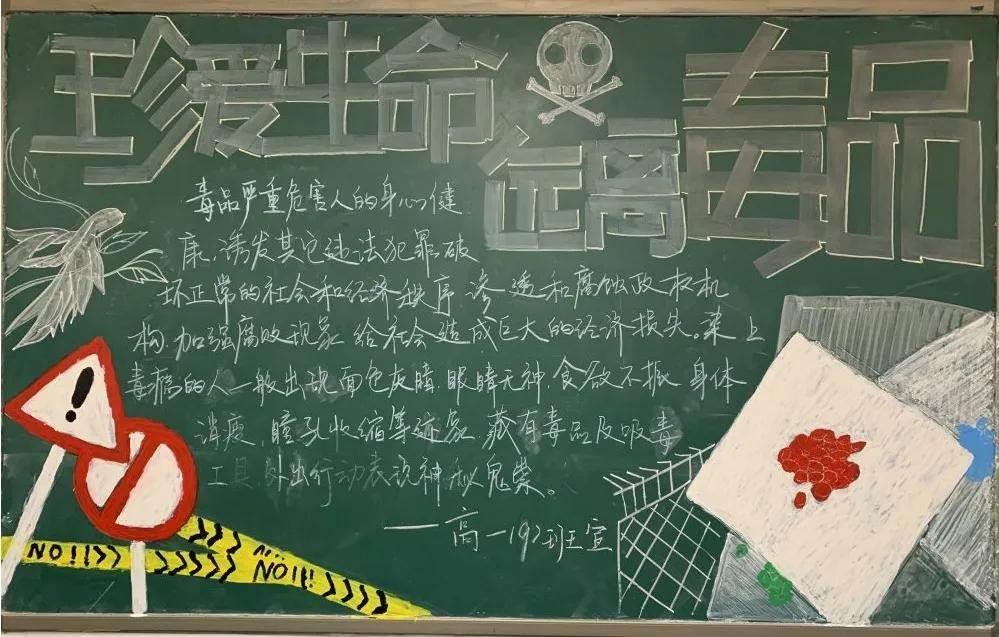 珍爱生命
远离毒品
毒品严重危害人的身心健
康、诱发其它违法犯罪破
坏正常的社会和经济秩序 渗透和腐蚀政权机
构 加强腐败现象 给社会造成巨大的经济损失。染上
毒瘾的人一般出现面色灰暗、眼睛无神、食欲不振 身体
消瘦、瞳孔收缩等迹象 藏有毒品及吸毒
工具 外出行动表现神秘鬼祟。
——高一19)班宣
NO!!>>
NO!!!